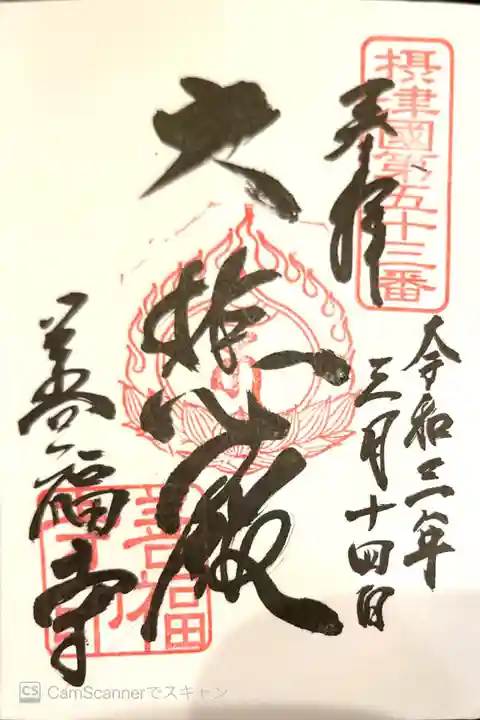 摂津國第五十三番
奉拝
令和三年
三月十四日
大
善福寺
善福
CamScannerでスキャン